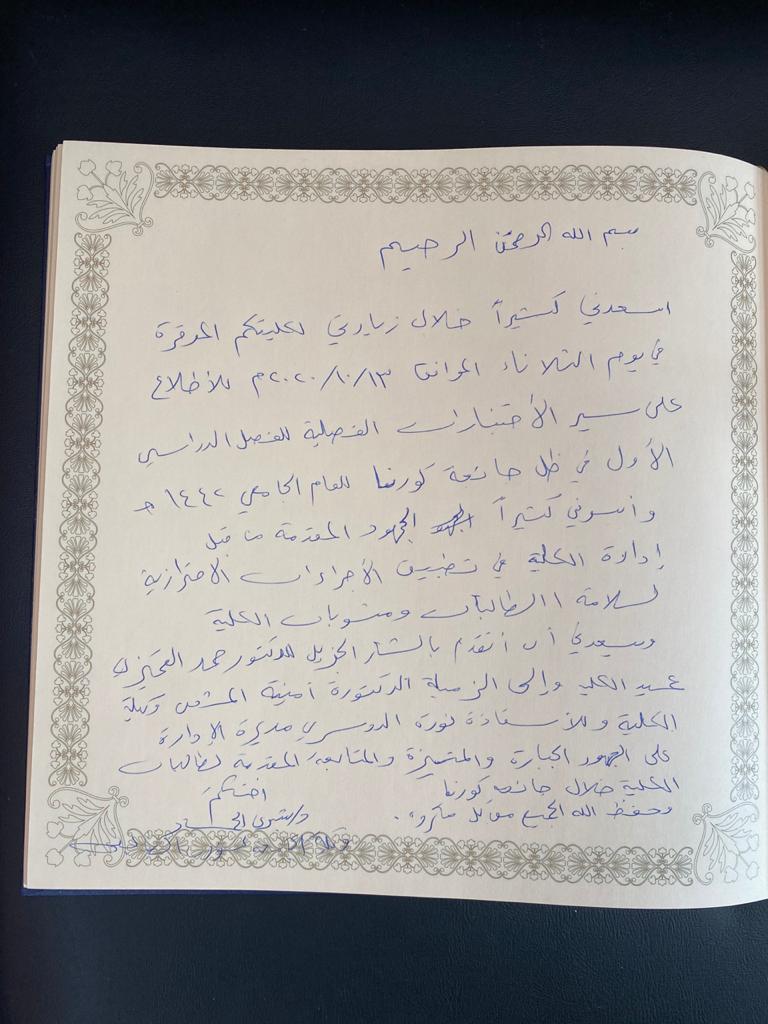 بسم الله الرحمن الرحيم
اسعدني كثيراً خلال زيارتي لكليتكم الموقرة
في يوم الثلاثاء الموافق ١٣/١٠/٢٠٢٠م للأطلاع
على سير الأختبارات الفصلية للفصل الدراسي
الأول في ظل جائحة كورنا للعام الجامعي ١٤٤٢هـ
كثيراً الجهود المقدمة من قبل
إدارة الكلية في تطبيق الأجراءات الاحترازية
لسلامة الطالبات ومنسوبات الكلية
ويسعدني أن أتقدم بالشكر الجزيل للدكتور حمد
عميد الكلية وإلى الزميلة الدكتورة أمنية وكيلة
الكلية وللأستاذة نورة الدوسري مديرة الإدارة
على الجهود الجبارة والمتميزة والمتابعة المقدمة لطالبات
الكلية خلال جائحة كورنا
وحفظ الله الجميع من كل مكروه.
اختكم
د/بشرى